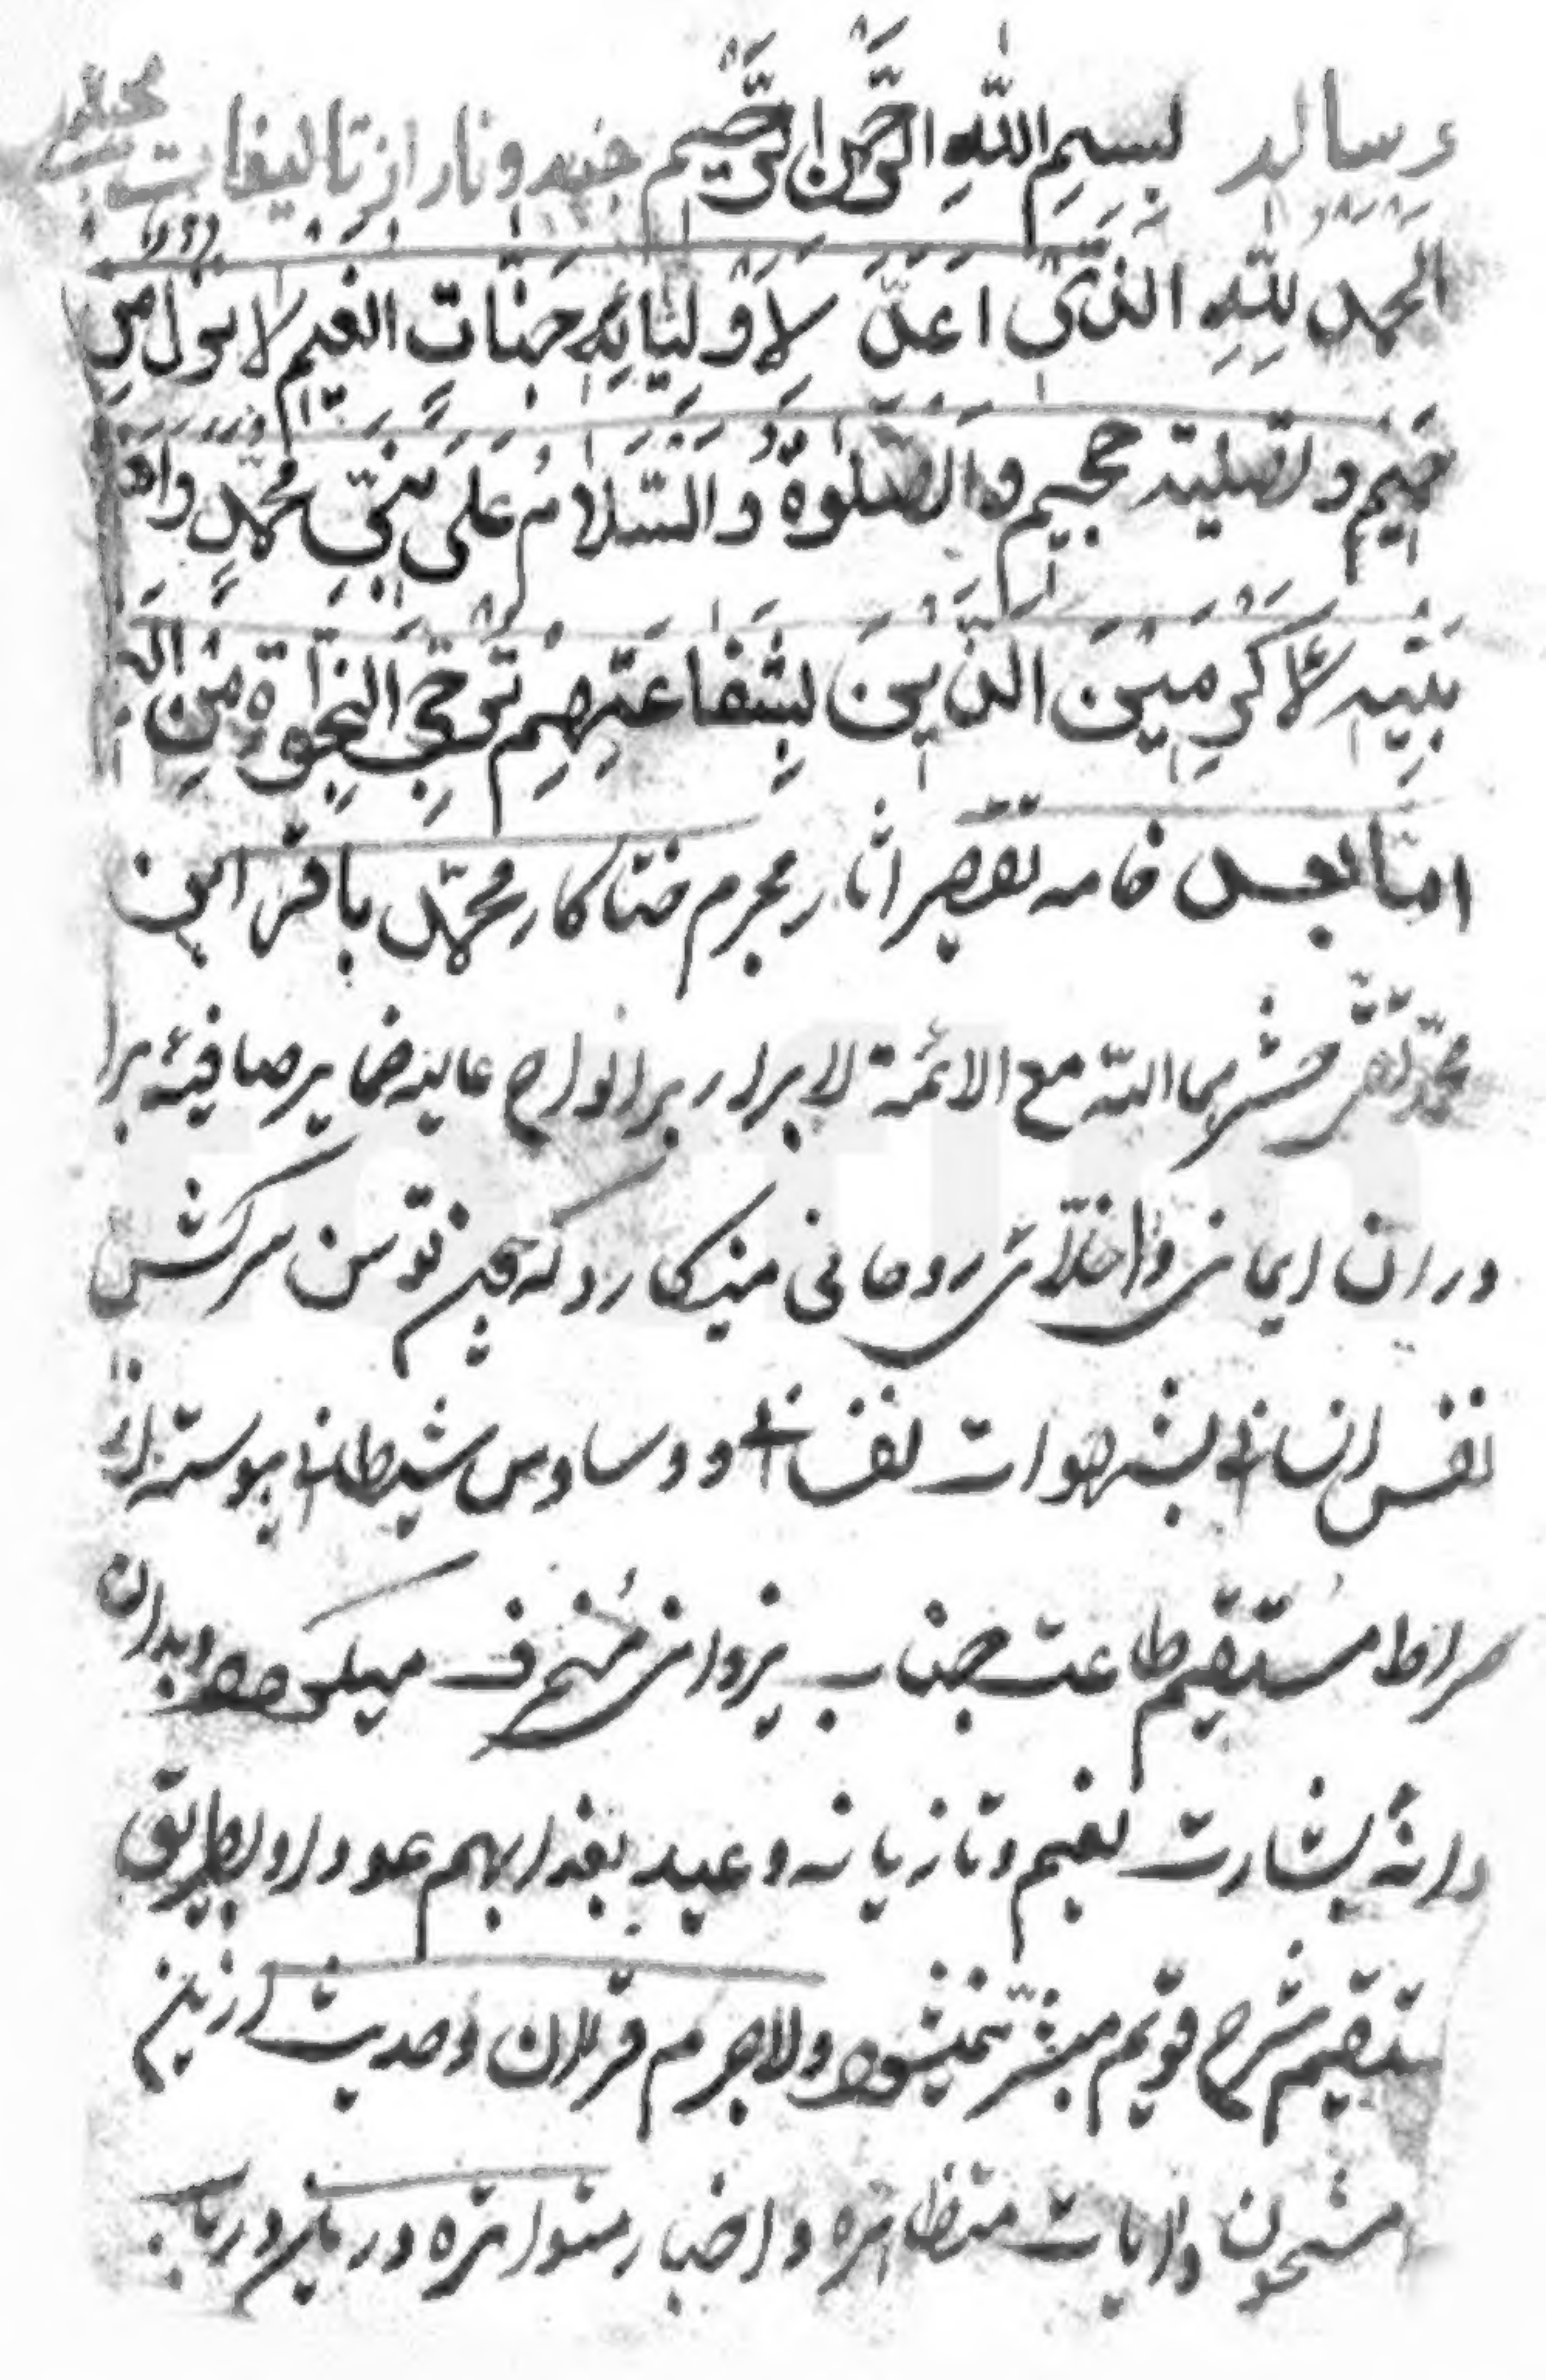 رساله بِسمِ اللهِ الرَّحمن الرَّحيم جنه و نار از تاليفات مجلسى
الحمد لِلّهِ الذَّى اَعَدَّ لاَوْلِيَائِهِ جَنَّاتِ النعيم لا نزول من
حميم و تصلية جحيم و الصّلوةُ وَ السَّلامُ عَلى نَبيّ محُمَّدٍ و اهل
بَيْتِهِ الاَكرَمينَ الّذينَ بِشَفاعَتِهِم تُرجى النجوة مِن
اما بعد خامه تقصير اثار مجرم خطاكار محمّد باقر ابن
محمّد تقى حشرهما اللّه مع الائمة الابرار بر الواح عاليه ضماير صافيهٔ برا
دران ايمانى و اخلّاى روحانى مينكارد كه چون توسن سركش
نفس انسانى بشهوات نفسانى و وساوس شيطانى پيوسته از
صراط مستقيم طاعت جناب يزدانى مُنحرف ميكردد و بدان
دانهٔ بشارت نعيم و تازيانه وعيد بعذاب اليم عود او بطريق
ستقيم شرع قويم ميسّر نميشود و لاجرم قران و حديث ازين
مشحون و ايات متظاهره و اخبار متواتره درين درباب